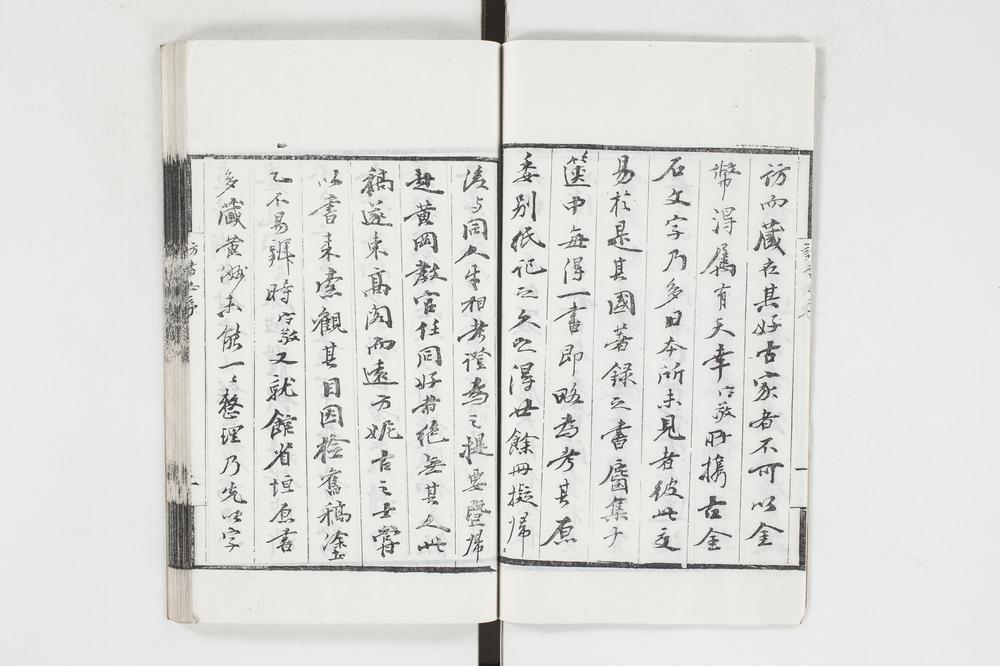 訪而藏在其好古家者不可以金
幣得屬有天幸守敬所攜古金
石文字乃多日本所未見者彼此交
易於是其國著録之書麕集于
篋中每得一書即略為考其原
委别紙記之久之得廿餘册擬歸
後与同人牛相考證為之提要暨歸
赴黄岡教官任同好者絶無其人此
稿遂束高閣而遠方妮古之士嘗
以書来索觀其目因檢舊稿塗
乙不易辨時守敬又就館省垣原書
多藏黄州未能一々整理乃先以字